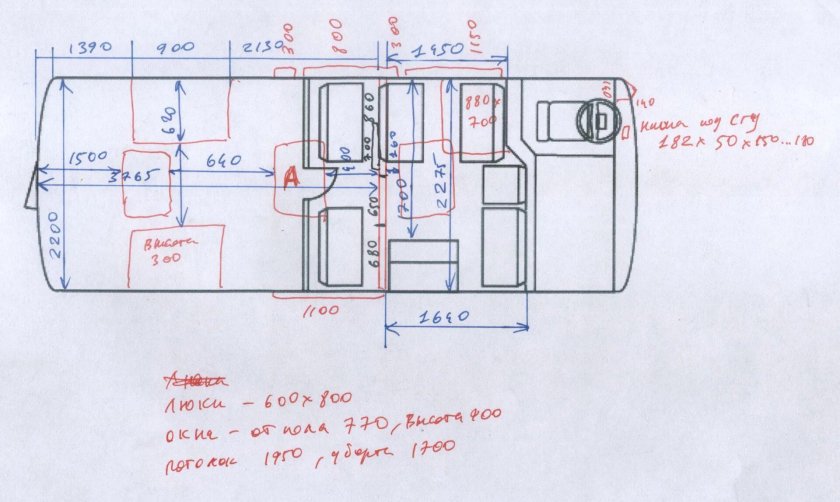 1390 900 2130 300 800 300 1950 1150
620
860
880x
700
140
ниша под СГУ
182 x 50 x 150...180
1500
3765
640
A
700
760
700
2275
650
680
2200
Высота
300
1100
1640
Люки – 600 x 800
окна – от пола 770, высота 900
потолок 1950, у борта 1700